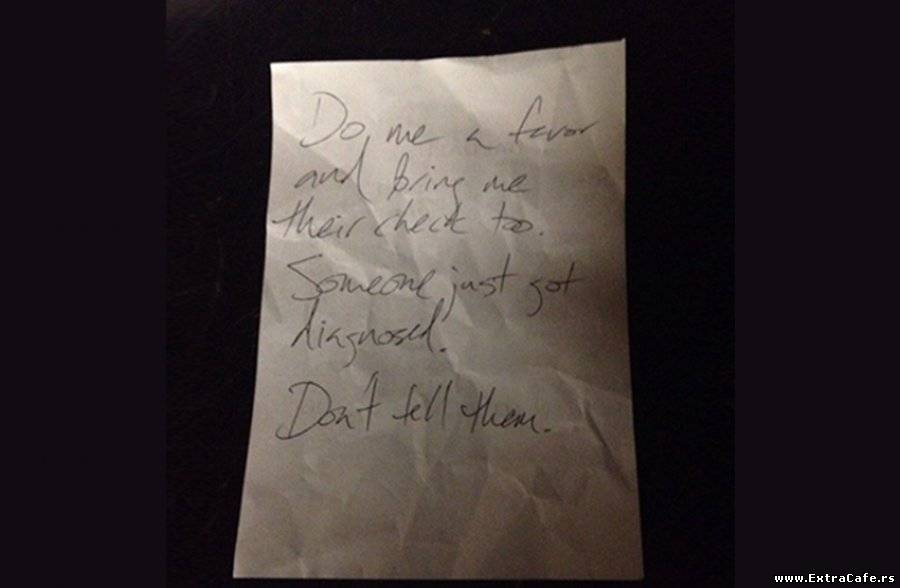 Do me a favor
and bring me
their check too.
Someone just got
diagnosed.
Don't tell them.
www.ExtraCafe.rs